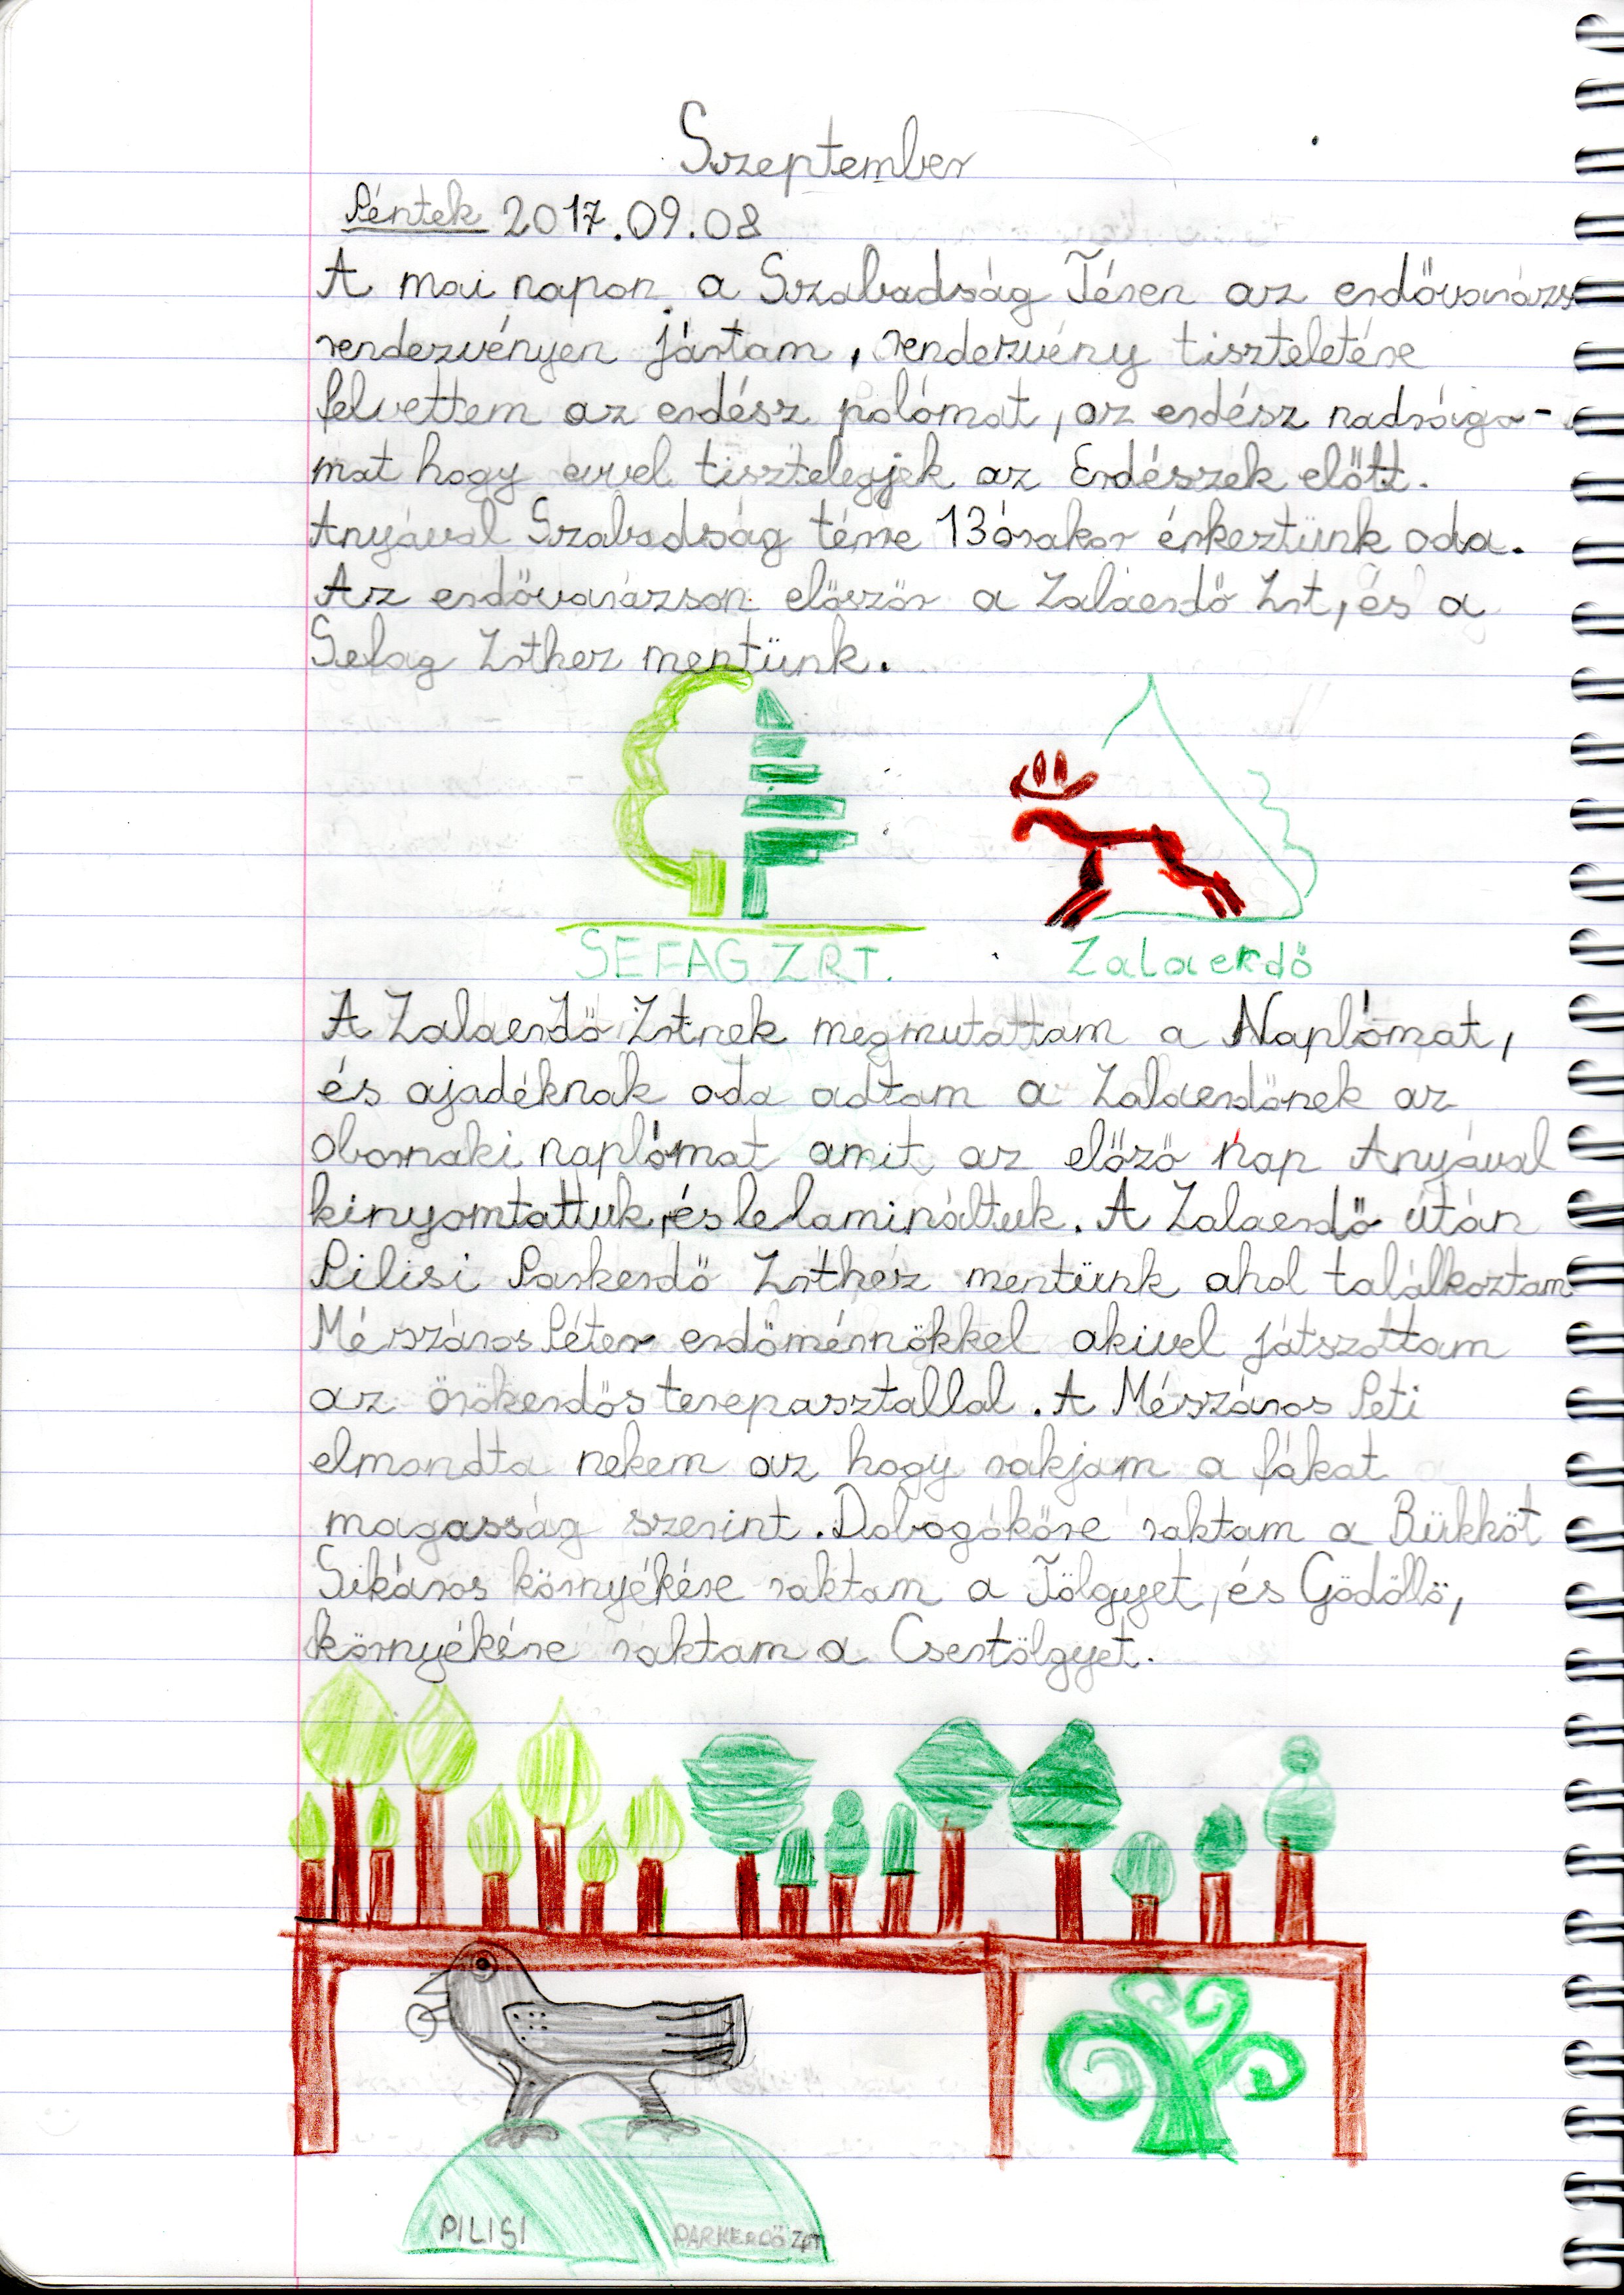 Szeptember
Péntek 2017.09.08
A mai napon a Szabadság Téren az erdővarázs
rendezvényen jártam, rendezvény tiszteletére
felvettem az erdész polómat, az erdész nadrága-
mat hogy evvel tisztelegjek az Erdészek előtt.
Anyával Szabadság térre 13órakor érkeztünk oda.
Az erdővarázson először a Zalaerdő Zrt, és a
Sefag Zrthez mentünk.
SEFAG ZRT.
Zalaerdő
A Zalaerdő Zrtnek megmutattam a Naplómat,
és ajadéknak oda adtam a Zalaerdőnek az
obornaki naplómat amit az előző nap Anyával
kinyomtattuk, és lelamináltuk. A Zalaerdő útán
Pilisi Parkerdő Zrthez mentünk ahol találkoztam
Mészáros Péter erdőmérnökkel akivel játszottam
az örökerdős terepasztallal. A Mészáros Peti
elmondta nekem az hogy rakjam a fákat
magasság szerint. Dobogókőre raktam a Bükköt
Sikáros környékére raktam a Tölgyet, és Gödöllő,
környékére raktam a Csertölgyet.
PILISI
PARKERDŐ ZRT